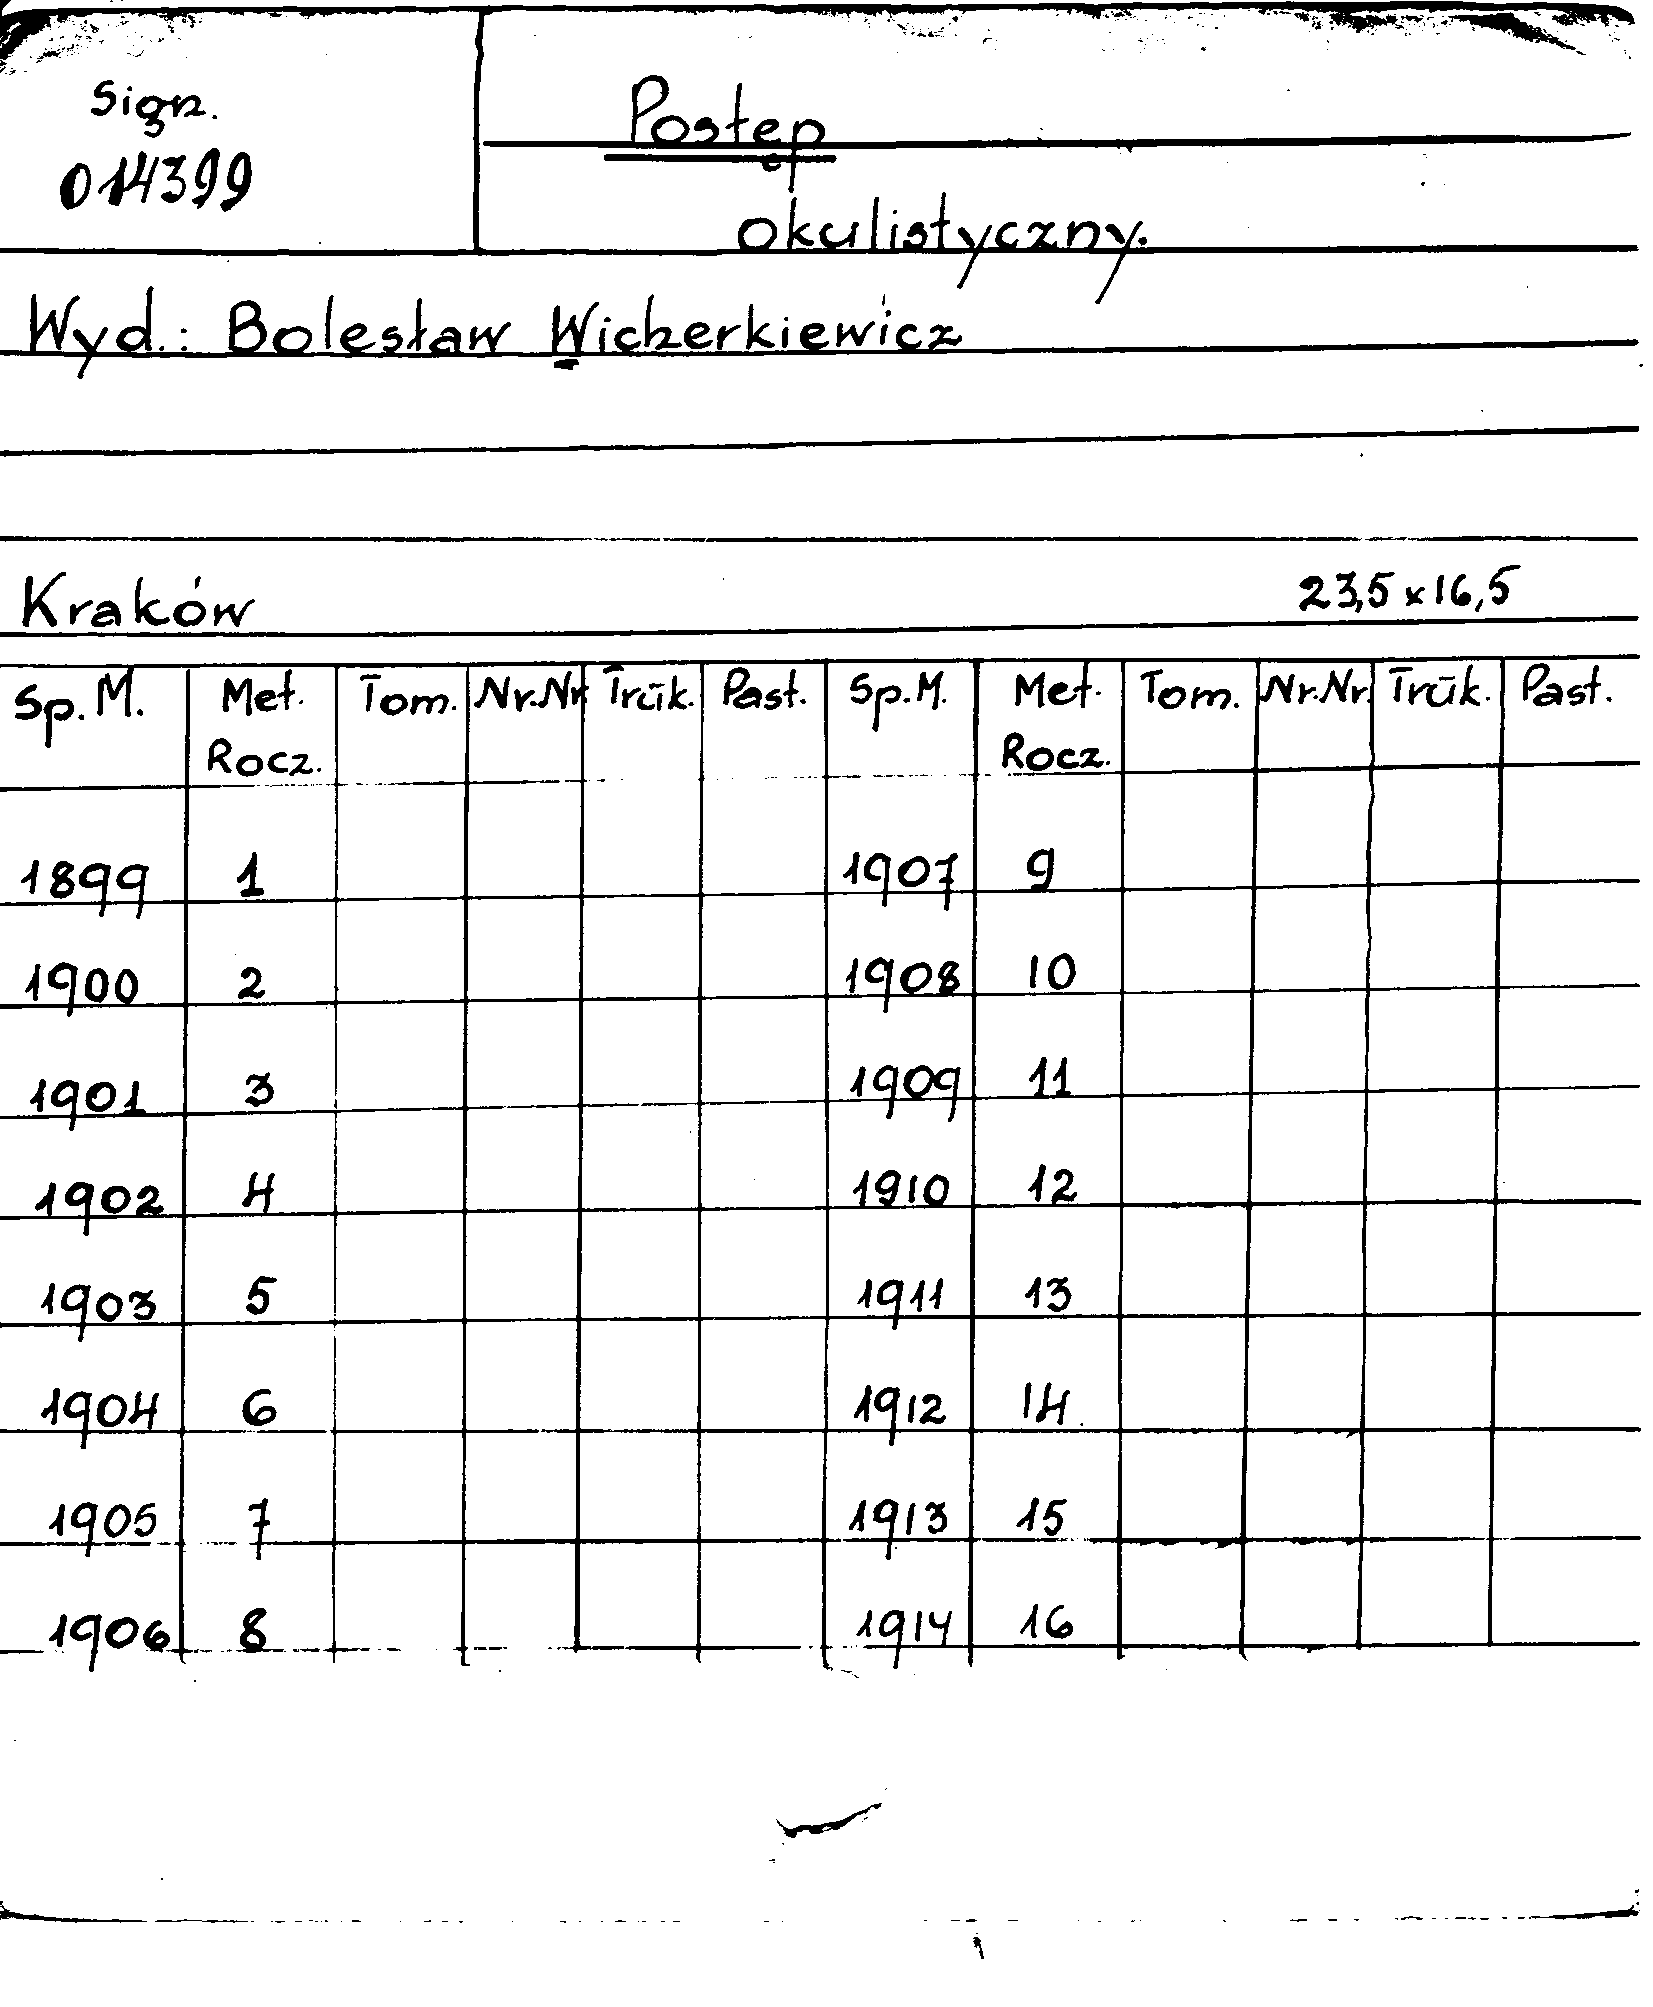 Sign.
014399
Postęp
okulistyczny.
Wyd.: Bolesław Wicherkiewicz
Kraków 23,5 x 16,5
Sp. M. Met. Rocz. Tom. Nr. Nr Trūk. Past. Sp. M. Met. Rocz. Tom. Nr. Nr. Trūk. Past.
1899 1 1907 9
1900 2 1908 10
1901 3 1909 11
1902 4 1910 12
1903 5 1911 13
1904 6 1912 14
1905 7 1913 15
1906 8 1914 16